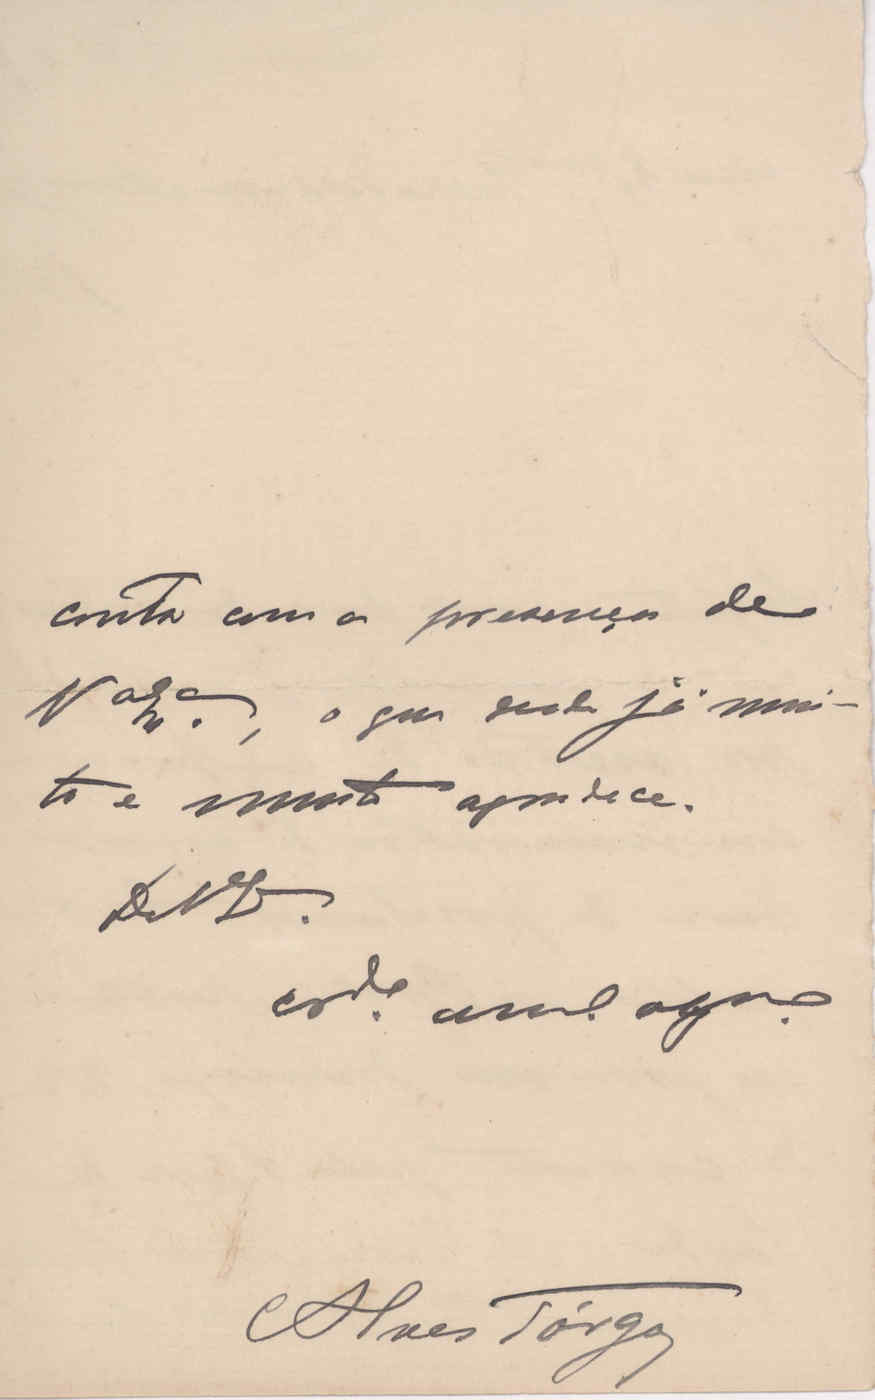 conta com a presença de
V. Exca., o que desde já mui-
to e muito agradece.
De V. Ex.
cr.do am.o agr.
Alves Tórgo